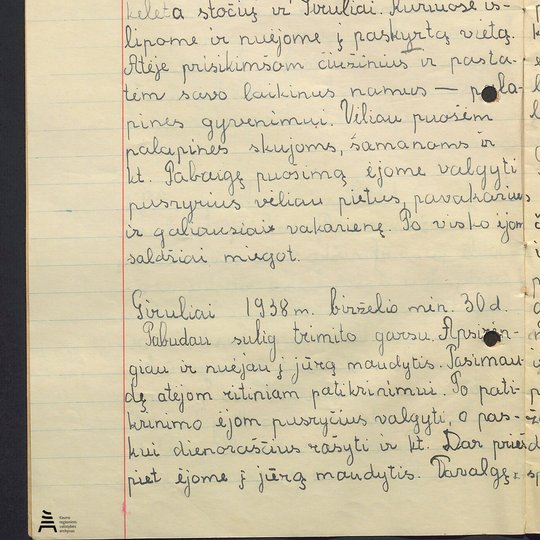 keleta stočių ir Giruliai. Kuriuose iš-
lipome ir nuėjome į paskyrtą vietą.
Atėje prisikimšom čiužinius ir pasta-
tėm savo laikinus namus — pala-
pines gyvenimui. Vėliau puošėm
palapines skujoms, šamanoms ir
kt. Pabaigę puošimą ėjome valgyti
pusryčius vėliau pietus, pavakarius
ir galiausiai vakarienę. Po visko ėjom
saldžiai miegot.
Giruliai 1938 m. birželio mėn. 30 d.
Pabudau sulig trimito garsu. Apsiren-
giau ir nuėjau į jūrą maudytis. Pasimau-
dę atėjom ritiniam patikrinimui. Po pati-
krinimo ėjom pusryčius valgyti, o pas-
kui dienoraščius rašyti ir kt. Dar prieš
piet ėjome į jūrą maudytis. Pavalgę
Kauno
regioninis
valstybės
archyvas